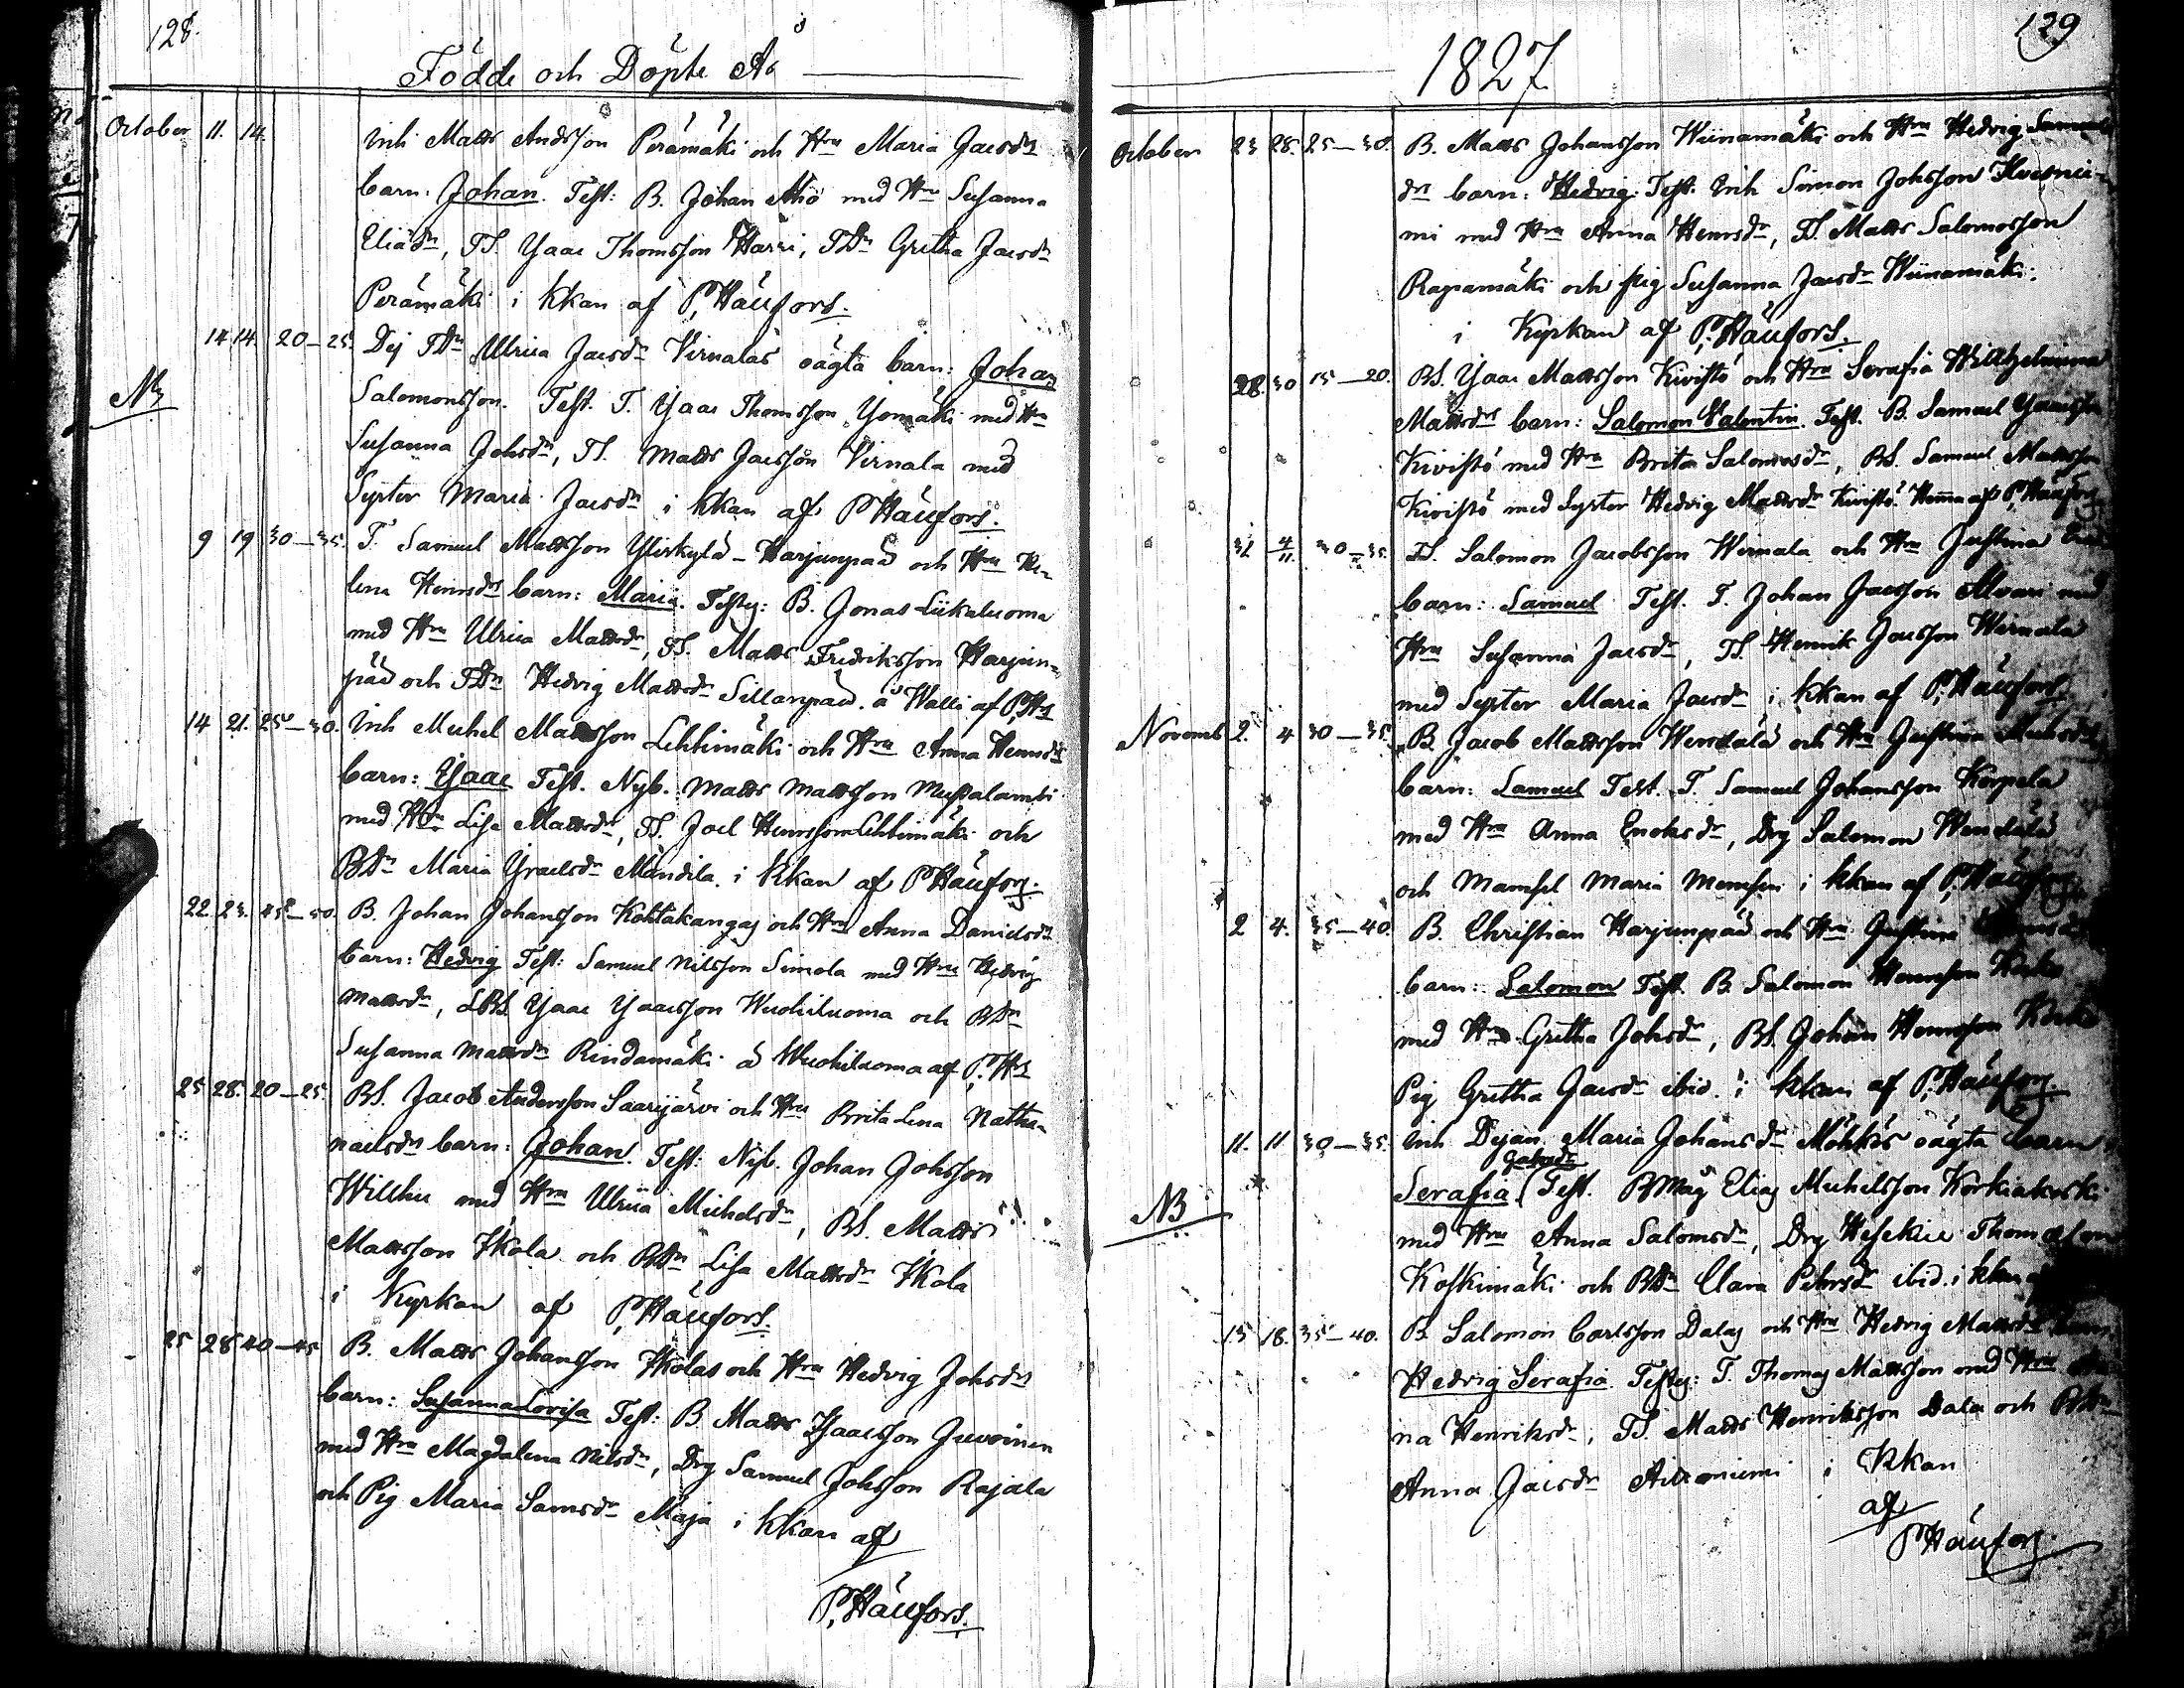 128.
Födde och Döpte Aö
October 11. 14. Inh Matts Andsson Perämäki och Hru Maria Jacsdrs
barn: Johan. Test: B. Johan Ahö med Hru Susanna
Eliædr, TS. Ysaac Thomsson Harri, TDr Gretha Jacsdr
Perämäki i kkan af P. Häufors.
14 14. 20–25. Dej TDr Ulrica Jacsdr Virnalas oägta barn: Johan
NB
Salomonsson. Test. T. Ysaac Thomsson Yomäki med Hru
Susanna Johsdr, TS. Matts Jacsson Virnala med
Syster Maria Jacsdr i kkan af P Häufors.
9 19 30–35. T. Samuel Mattsson Ylirkylä-Harjunpää och Hru He-
lena Hemsdrs barn: Maria. Testes: B. Jonas Liikaluoma
med Hru Ulrica Mattsdr, TS. Matts Fredriksson Harjun-
pää och TDr Hedvig Mattsdr Sillanpää. å Walli af P. Hs
14 21. 25–30. Inh Michel Mattsson Lehtimäki och Hru Anna Hemsdrs
barn: Ysaac Test. Nyb. Matts Mattsson Mustalambi
med Hru Lisa Mattsdr, TS. Joel Hemsson Lehtimäki och
BDr Maria Ysraelsdr Mandila i kkan af P Häufors.
22 23. 45–50. B. Johan Johansson Kohtakangas och Hru Anna Danielsdrs
barn: Hedvig Test: Samuel Nilsson Simola med Hru Hedvig
Mattsdr, LBS. Ysaac Ysaacsson Wuohiluoma och BDr
Susanna Mattsdr Rindamäki å Wuohiluoma af P. Hs
25 28. 20–25. BS. Jacob Andersson Saarijärvi och Hru Brita Lena Natha-
naelsdrs barn: Johan. Test: Nyb. Johan Johsson
Willhu med Hru Ulrica Michelsdr, BS. Matts
Mattsson Ikola och BDr Lisa Mattsdr Ikola
i Kyrkan af P. Häufors.
25 28 40–45 B. Matts Johansson Ikolas och Hru Hedvig Johsdrs
barn: Susanna Lovisa Test: B Matts Ysaacsson Juvoinen
med Hru Magdalena Nilsdr, Drg Samuel Johsson Rajala
och Pig Maria Samsdr Maja i kkan af
P. Häufors.
129
1827
October 23 28. 25–30. B. Matts Johansson Wiinamäki och Hru Hedvig
drs barn: Hedvig. Test. Inh Simon Johsson
mi med Hru Anna Hemsdr, TS. Matts Salomosson
Rapamäki och pig Susanna Jacsdr Wiinamäki
i Kyrkan af P. Häufors.
28. 30 15–20. BS. Ysaac Mattsson Kivistö och Hru Serafia Wilhelmina
Mattsdrs barn: Salomon Valentin. Test. B. Samuel Ysaacsson
Kivistö med Hru Brita Salomosdr, BS. Samuel Mattsson
Kivistö med Syster Hedvig Mattsdr Kivistö. Hemma af P. Häufors
31 4/11. 30–35. TS. Salomon Jacobsson Wirnala och Hru Justina
barn: Samuel Test. T. Johan Jacsson Alvari med
Hru Susanna Jacsdr, TS. Henrik Jacsson Wirnala
med Syster Maria Jacsdr i kkan af P. Häufors.
Novemb 2. 4 30–35. B. Jacob Mattsson Wendala och Hru Justina
barn: Samuel Test. T. Samuel Johansson Korpela
med Hru Anna Enoksdr, Drg Salomon Wendala
och Mamsel Maria i kkan af P. Häufors
2 4. 35–40. B. Christian Harjunpää och Hru Justina
barn: Salomon Test. B. Salomon Hemsson
med Hru Gretha Johsdr, BS. Johan Hemsson
Pig Gretha Jacsdr ibid. i kkan af P. Häufors.
11. 11 30–35. Inh Dejan Maria Johansdr Möhkös oägta barn
NB
Serafia Test. Elias Michelsson Korkiakoski
med Hru Anna Salomsdr, Drg Hesekiel Thomasson
Koskimäki och BDr Clara Pehrsdr ibid. i kkan af
15 18. 35–40. B Salomon Carlsson Dalas och Hru Hedvig Mattsdrs barn
Hedvig Serafia. Testes: T. Thomas Mattsson med Hru
na Henriksdr, TS. Matts Henriksson Dala och BDr
Anna Jacsdr i Kkan
af
P Häufors.